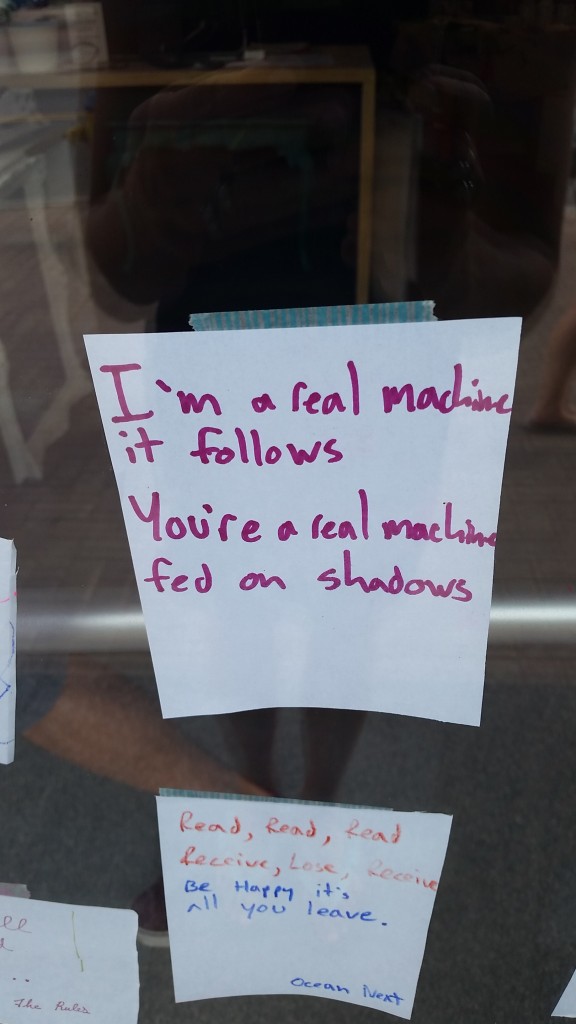 I'm a real machine
it follows
You're a real machine
fed on shadows
Read, Read, Read
Receive, Lose, Receive
Be Happy it's
all you leave.
Ocean Next
The Rules